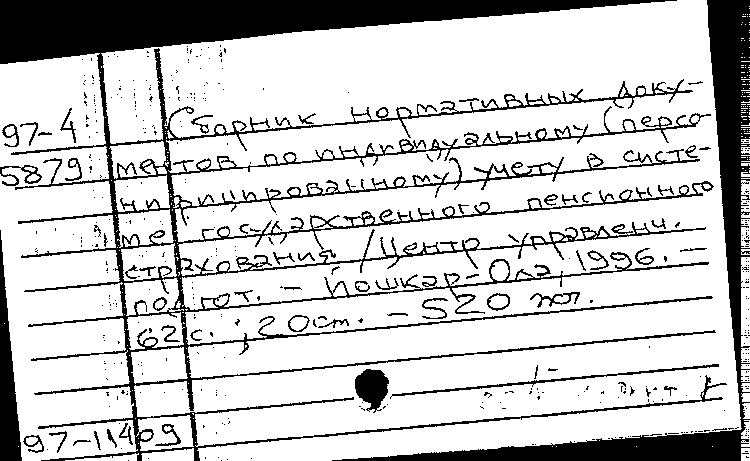 97-4
5879
Сборник нормативных доку-
ментов, по индивидуальному (персо-
нифицированному) учету в систе-
ме государственного пенсионного
страхования / Центр управленч.
подгот. – Йошкар-Ола, 1996. –
62 с.; 20 см. – 520 экз.
97-11409